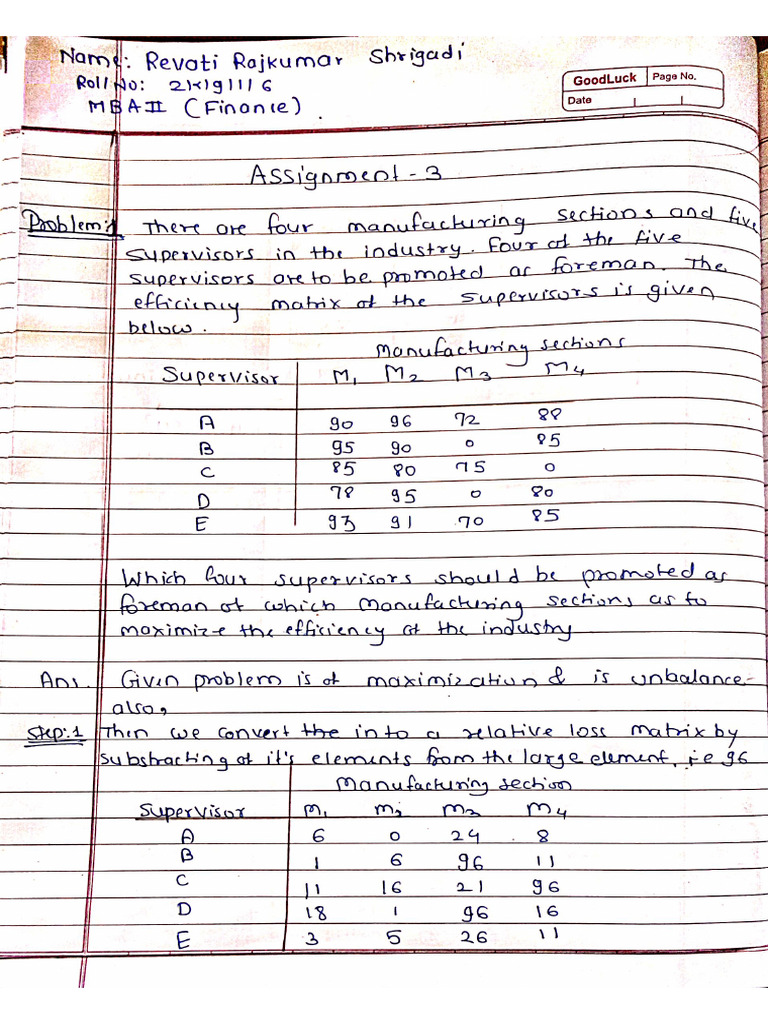 Name: Revati Rajkumar Shrigadi
Roll No: 21x191116
MBA II (Finance).
GoodLuck Page No.
Date
Assignment - 3
Problem:1 There are four manufacturing sections and five
supervisors in the industry. Four of the five
supervisors are to be promoted as foreman. The
efficiency matrix of the supervisors is given
below.
Manufacturing sections
Supervisor M1 M2 M3 M4
A 90 96 72 88
B 95 90 0 85
C 85 80 75 0
D 78 95 0 80
E 93 91 70 85
Which four supervisors should be promoted as
foreman of which manufacturing sections as to
maximize the efficiency of the industry
Ans. Given problem is of maximization & is unbalance
also,
Step:1 Then we convert the into a relative loss matrix by
substracting of it's elements from the large element, i.e 96
Manufacturing section
Supervisor M1 M2 M3 M4
A 6 0 24 8
B 1 6 96 11
C 11 16 21 96
D 18 1 96 16
E 3 5 26 11